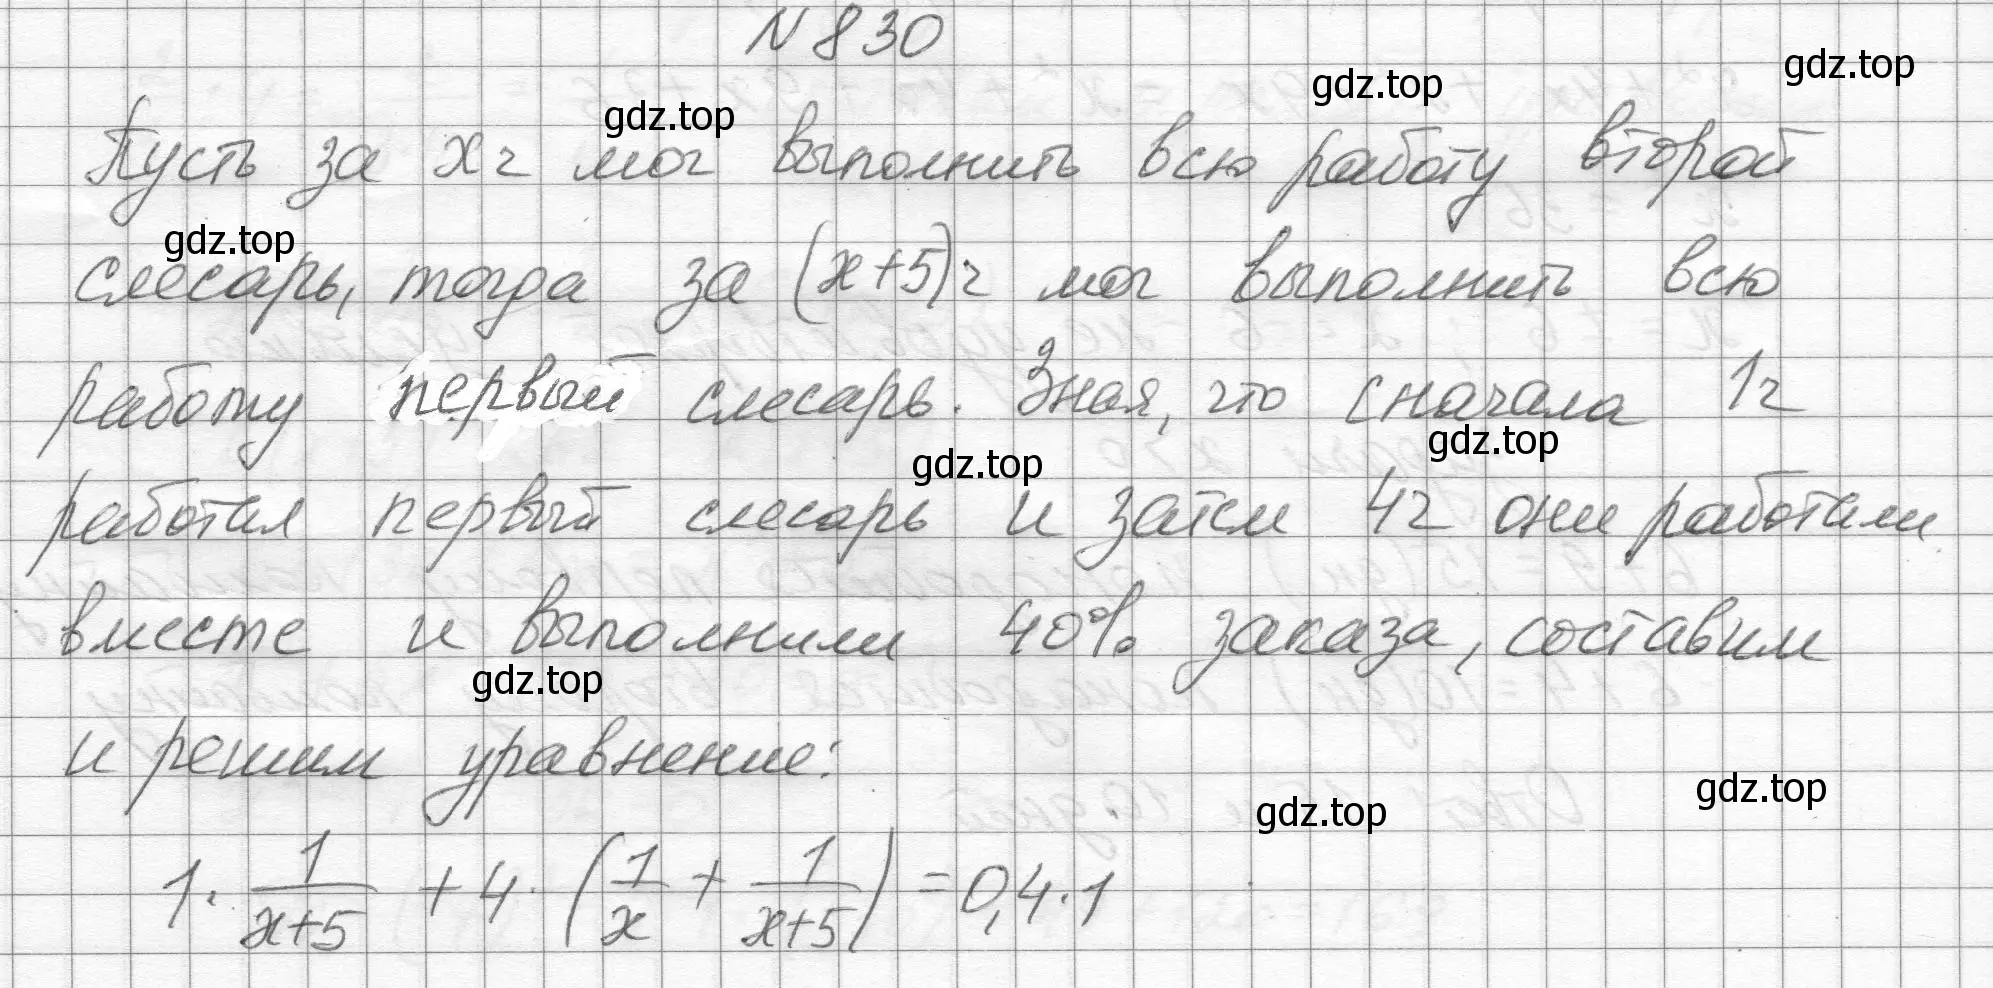 N 830
Пусть за x ч мог выполнить всю работу второй
слесарь, тогда за (x+5) ч мог выполнить всю
работу первый слесарь. Зная, что сначала 1 ч
работал первый слесарь и затем 4 ч они работали
вместе и выполнили 40% заказа, составим
и решим уравнение:
1 · 1/(x+5) + 4 · (1/x + 1/(x+5)) = 0,4 · 1
gdz.top
gdz.top
gdz.top
gdz.top
gdz.top
gdz.top
gdz.top
gdz.top
gdz.top